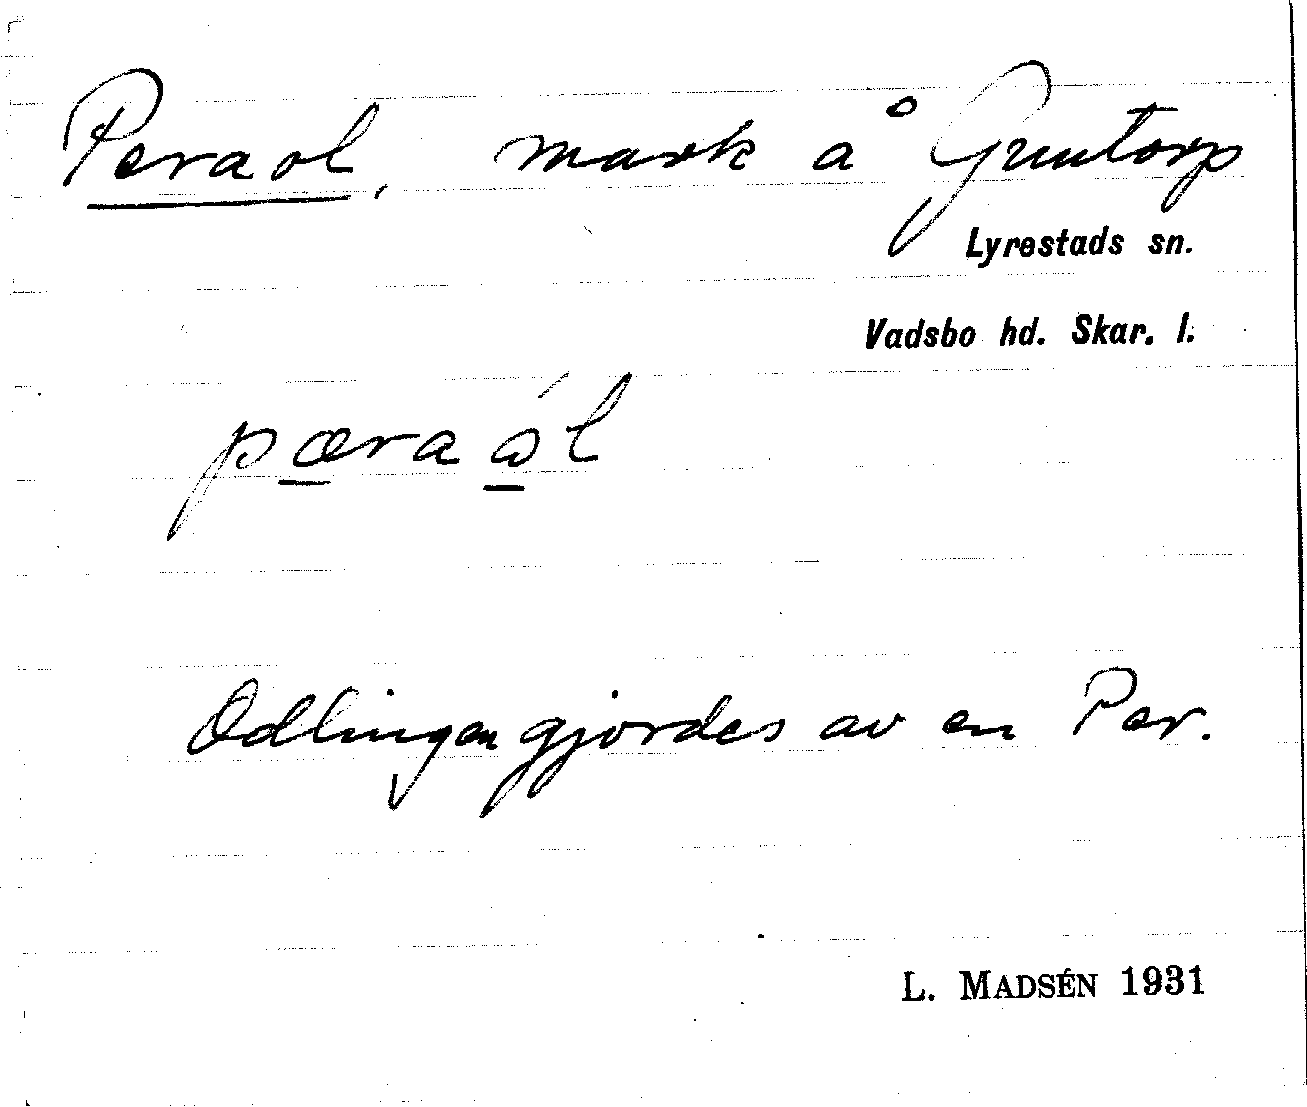 Peraol, mark å Gruntorp
Lyrestads sn.
Vadsbo hd. Skar. l.
pæraål
Odlingen gjordes av en Per.
L. MADSÉN 1931